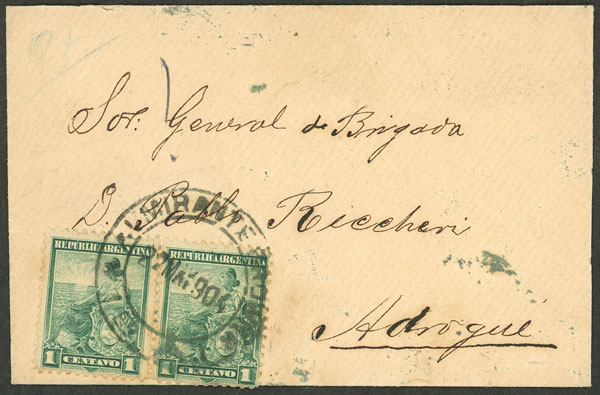 Sor. General de Brigada
D. Pablo Riccheri
Adrogué
ALMIRANTE BROWN
REPUBLICA ARGENTINA
1 CENTAVO 1
REPUBLICA ARGENTINA
1 CENTAVO 1